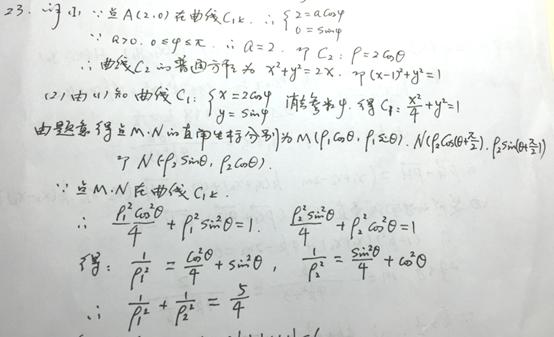 23. 解 (1) ∵ 点A(2,0)在曲线C₁上. ∴ {2=acosφ 0=sinφ
∵ a>0. 0≤φ≤π. ∴ a=2. 即 C₂: ρ=2cosθ
∴ 曲线C₂的普通方程为 x²+y²=2x. 即 (x-1)²+y²=1
(2) 由(1)知曲线C₁: {x=2cosφ y=sinφ 消去参数φ. 得C₁: x²/4+y²=1
由题意得点M.N的直角坐标分别为M(ρ₁cosθ, ρ₁sinθ). N(ρ₂cos(θ+π/2). ρ₂sin(θ+π/2))
即 N(-ρ₂sinθ, ρ₂cosθ).
∵ 点M.N在曲线C₁上.
∴ ρ₁²cos²θ/4 + ρ₁²sin²θ=1. ρ₂²sin²θ/4 + ρ₂²cos²θ=1
得: 1/ρ₁² = cos²θ/4 + sin²θ, 1/ρ₂² = sin²θ/4 + cos²θ
∴ 1/ρ₁² + 1/ρ₂² = 5/4